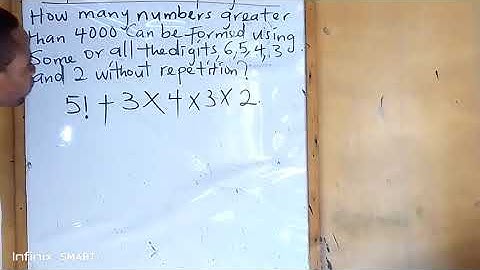 How many numbers greater
than 4000 can be formed using
some or all the digits 6,5,4,3
and 2 without repetition?
5! + 3 X 4 X 3 X 2
Infinix SMART